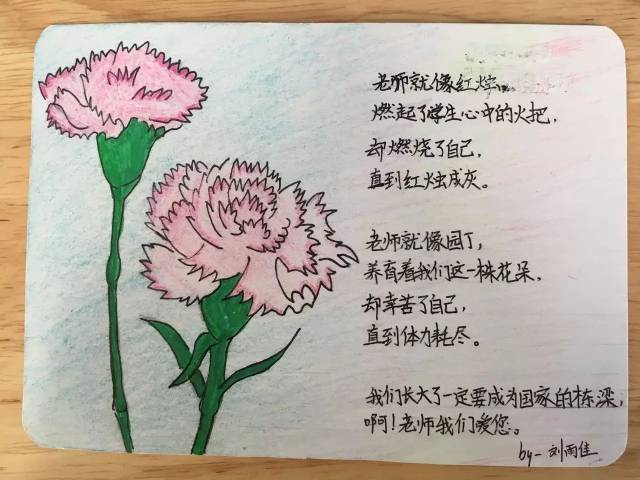 老师就像红烛，
燃起了学生心中的火把，
却燃烧了自己，
直到红烛成灰。
老师就像园丁，
养育着我们这一株花朵，
却幸苦了自己，
直到体力耗尽。
我们长大了一定要成为国家的栋梁，
啊！老师我们爱您。
by－刘雨佳